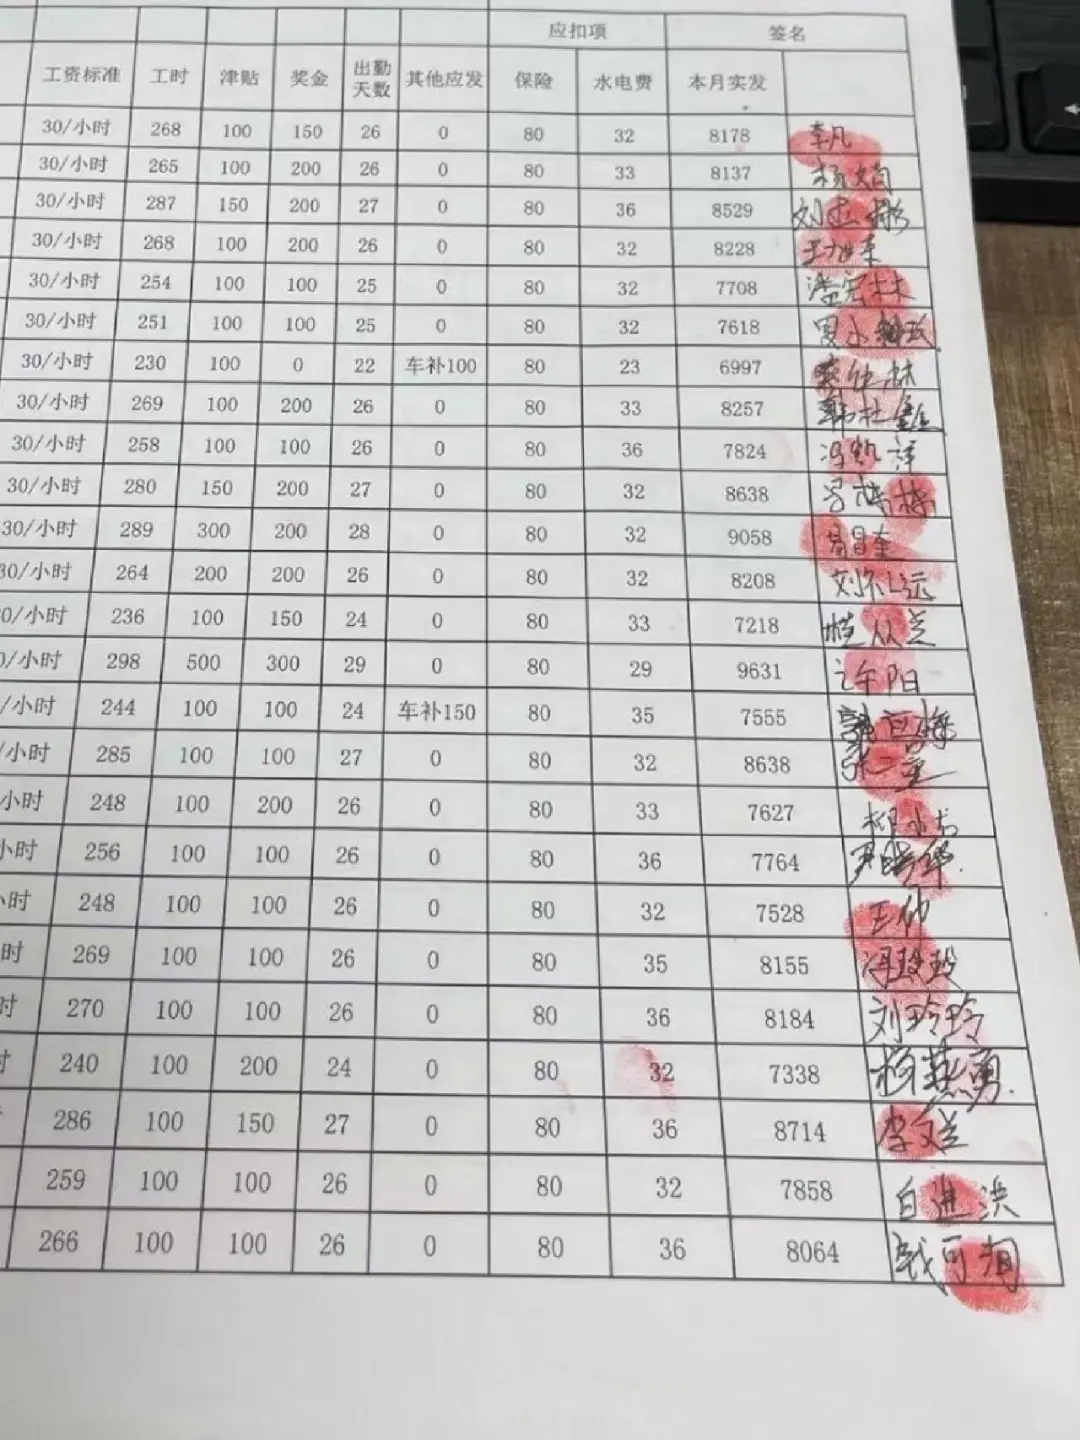 应扣项 签名
工资标准 工时 津贴 奖金 出勤天数 其他应发 保险 水电费 本月实发
30/小时 268 100 150 26 0 80 32 8178 李凡
30/小时 265 100 200 26 0 80 33 8137
30/小时 287 150 200 27 0 80 36 8529
30/小时 268 100 200 26 0 80 32 8228
30/小时 254 100 100 25 0 80 32 7708
30/小时 251 100 100 25 0 80 32 7618
30/小时 230 100 0 22 车补100 80 23 6997
30/小时 269 100 200 26 0 80 33 8257
30/小时 258 100 100 26 0 80 36 7824 冯凯祥
30/小时 280 150 200 27 0 80 32 8638
30/小时 289 300 200 28 0 80 32 9058
30/小时 264 200 200 26 0 80 32 8208
0/小时 236 100 150 24 0 80 33 7218
0/小时 298 500 300 29 0 80 29 9631
/小时 244 100 100 24 车补150 80 35 7555
/小时 285 100 100 27 0 80 32 8638
小时 248 100 200 26 0 80 33 7627
小时 256 100 100 26 0 80 36 7764
小时 248 100 100 26 0 80 32 7528
时 269 100 100 26 0 80 35 8155 冯玲玲
时 270 100 100 26 0 80 36 8184 刘玲玲
240 100 200 24 0 80 32 7338 杨燕勇
286 100 150 27 0 80 36 8714
259 100 100 26 0 80 32 7858 白进洪
266 100 100 26 0 80 36 8064